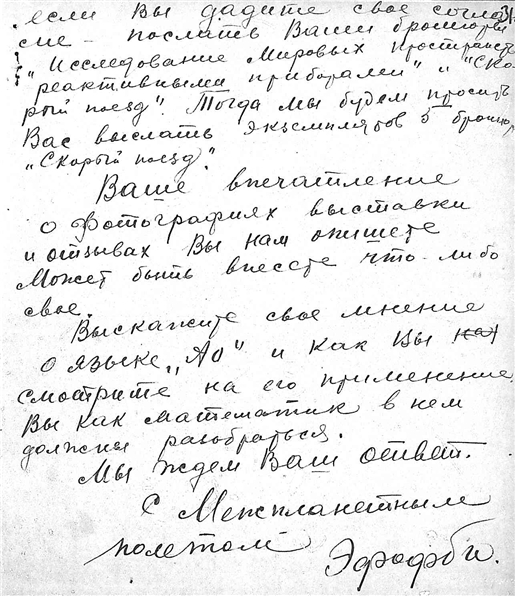 если Вы дадите свое согла
сие - послать Ваши брошюры
„Исследование Мировых пространств
реактивными приборами" и "Ско
рый поезд". Тогда мы будем просить
Вас выслать экземпляров 5 брошюр
„Скорый поезд".
Ваше впечатление
о фотографиях выставки
и отзывах Вы нам опишете
Может быть внесете что-либо
свое.
Выскажите свое мнение
о языке „АО" и как Вы
смотрите на его применение,
Вы как математик в нем
должны разобраться.
Мы ждем Ваш ответ.
С Межпланетным
полетом
Эфрофби.